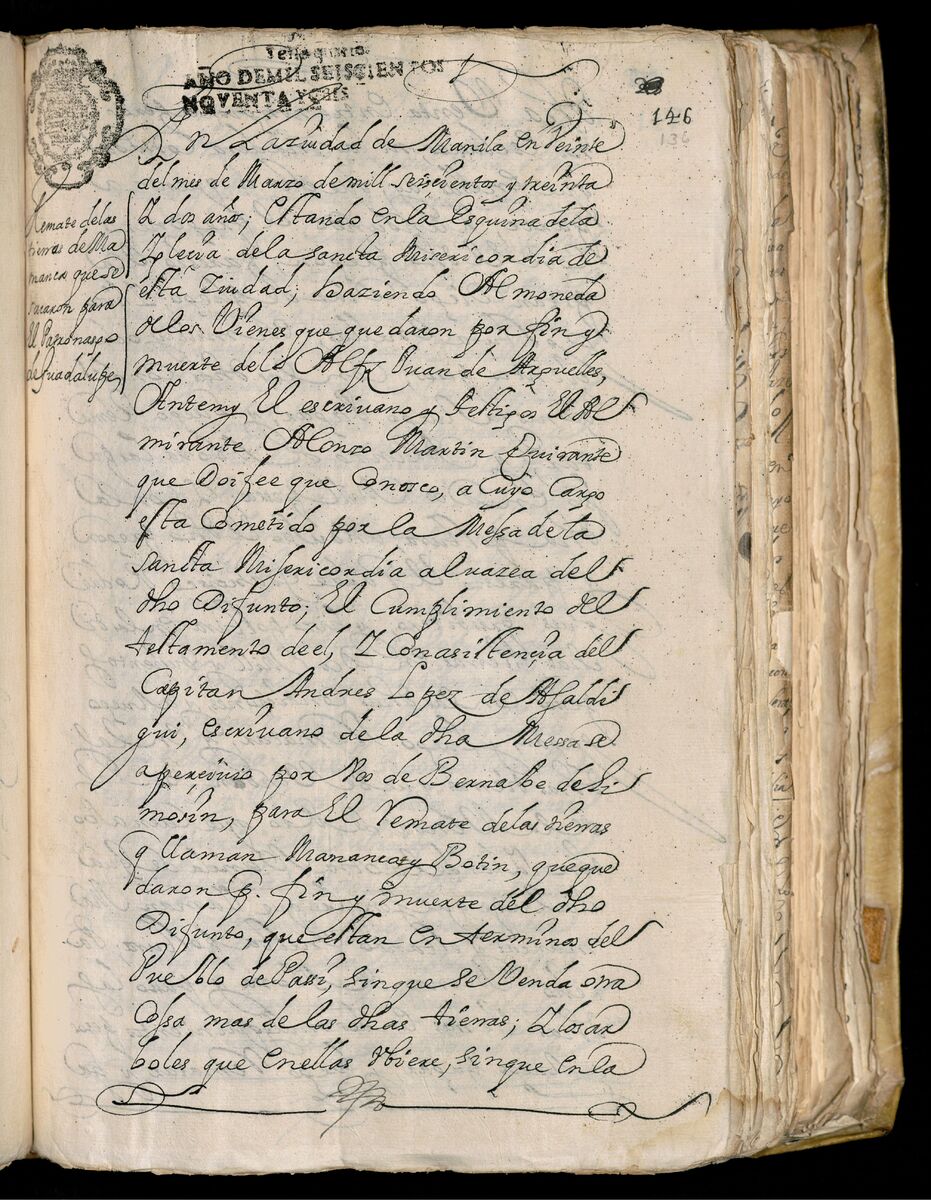 Sello quarto
AÑO DE MIL SEISCIENTOS
NOVENTA Y SEIS
146
136
Remate de las
tierras de Ma
nanca que se
sacaron para
El Patronasgo
de Guadalupe,
En La ziudad de Manila en Veinte
del mes de Marzo de mill seiscientos y treinta
Y dos años; Estando en la Esquina de la
Yglecia de la sancta Misericordia de
esta Ziudad; haziendo Almoneda
de los Vienes que quedaron por fin y
muerte del Alfz Juan de Arguelles,
Antemy El escrivano y testigos El Al
mirante Alonzo Martin Quirante
que Doifee que Conosco, a Cuyo Cargo
esta Cometido por la Messa de la
sancta Misericordia alvazea del
dho Difunto; El Cumplimiento del
testamento de el, Y Conasistençia del
Capitan Andres Lopez de Asaldi
gui, escrivano de la dha Messa se
aperçivio por Vos de Bernabe de Li
morin, para El Remate de las tierras
q llaman Manancat y Botin, que que
daron p. fin y muerte del dho
Difunto, que estan en terminos del
Pueblo de Passi, sin que se Venda otra
Cossa mas de las dhas tierras; Y los ar
boles que en ellas Vbiere, sin que en la